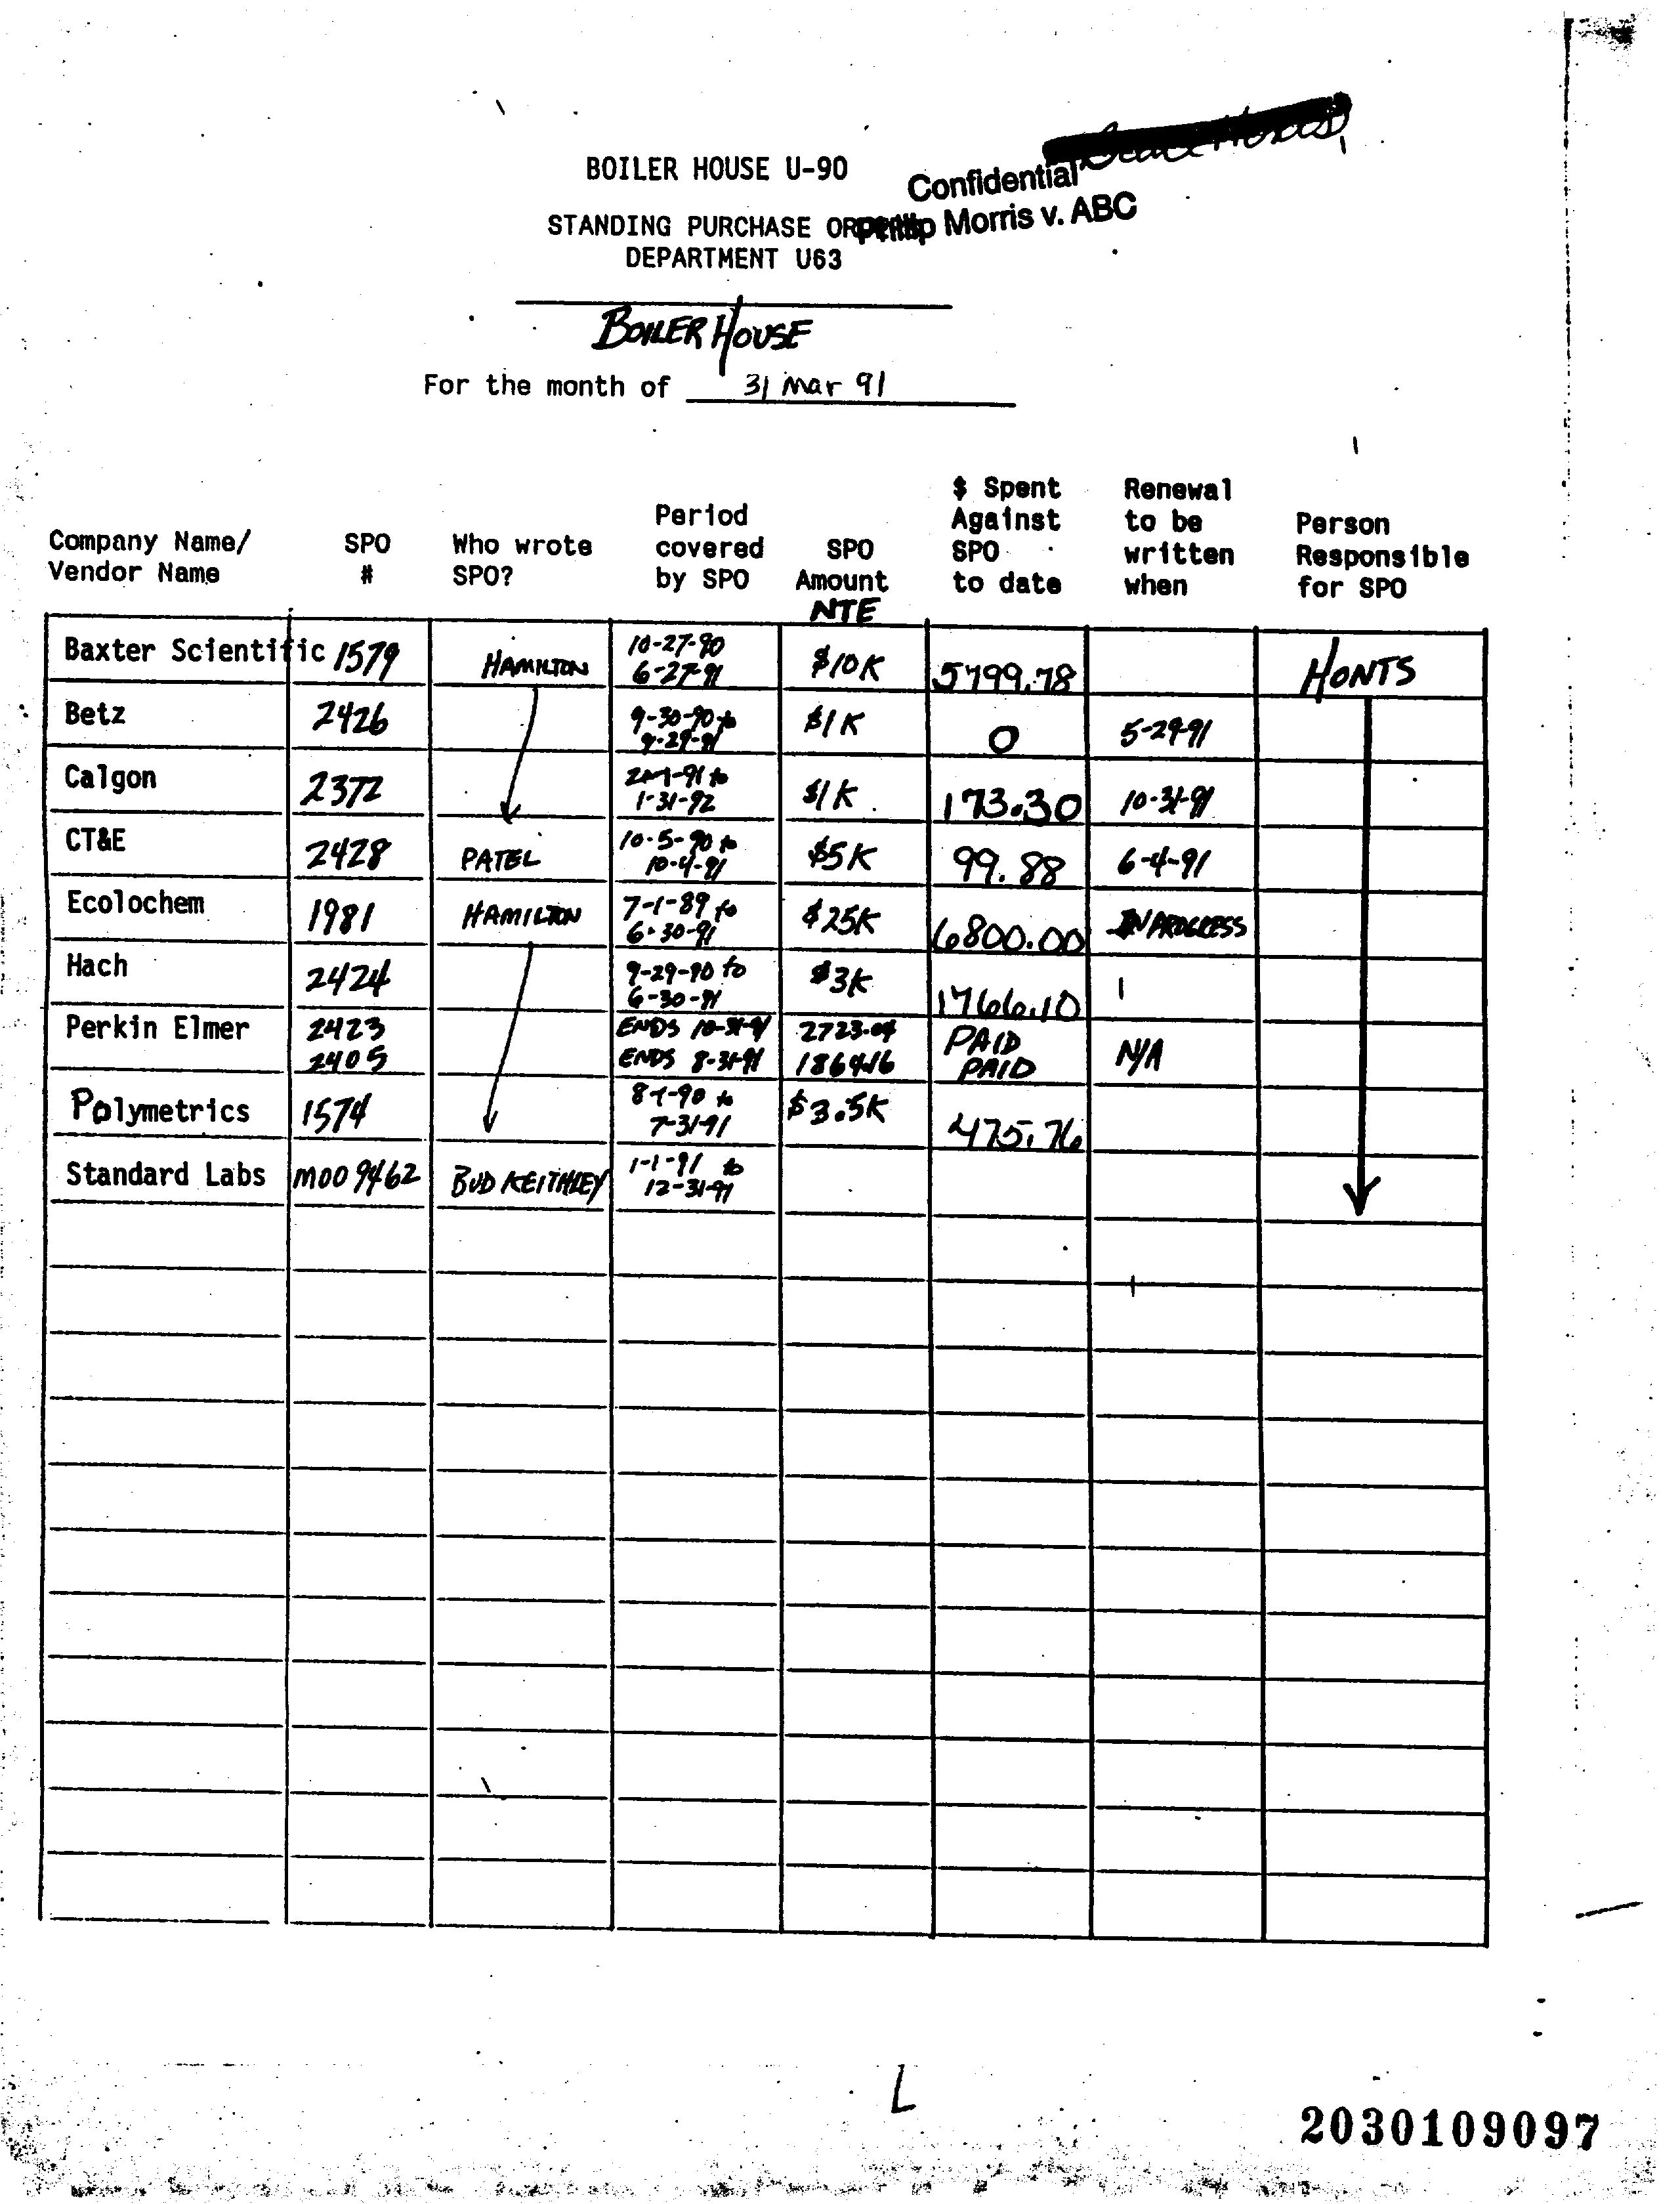 BOILER HOUSE U-90
Confidential
STANDING PURCHASE Morris v. ABC
DEPARTMENT U63
BOILER HOUSE
For the month of 31 Mar 91
Company Name/ Vendor Name
SPO #
Who wrote SPO?
Period covered by SPO
SPO Amount NTE
$ Spent Against SPO to date
Renewal to be written when
Person Responsible for SPO
Baxter Scientific 1579 HAMILTON 10-27-90 6-27-91 $10K 5799.78 HONTS
Betz 2426 9-30-90 to 9-29-91 $1K 0 5-29-91
Calgon 2372 2-1-91 to 1-31-92 $1K 173.30 10-31-91
CT&E 2428 PATEL 10-5-90 to 10-4-91 $5K 99.88 6-4-91
Ecolochem 1981 HAMILTON 7-1-89 to 6-30-91 $25K 6800.00 IN PROGRESS
Hach 2424 9-29-90 to 6-30-91 $3K 1766.10
Perkin Elmer 2423 ENDS 10-31-91 2723.04 PAID N/A
2405 ENDS 8-31-91 1864.16 PAID
Polymetrics 1574 8-1-90 to 7-31-91 $3.5K 475.76
Standard Labs M009462 BUD KEITHLEY 1-1-91 to 12-31-91
L
2030109097